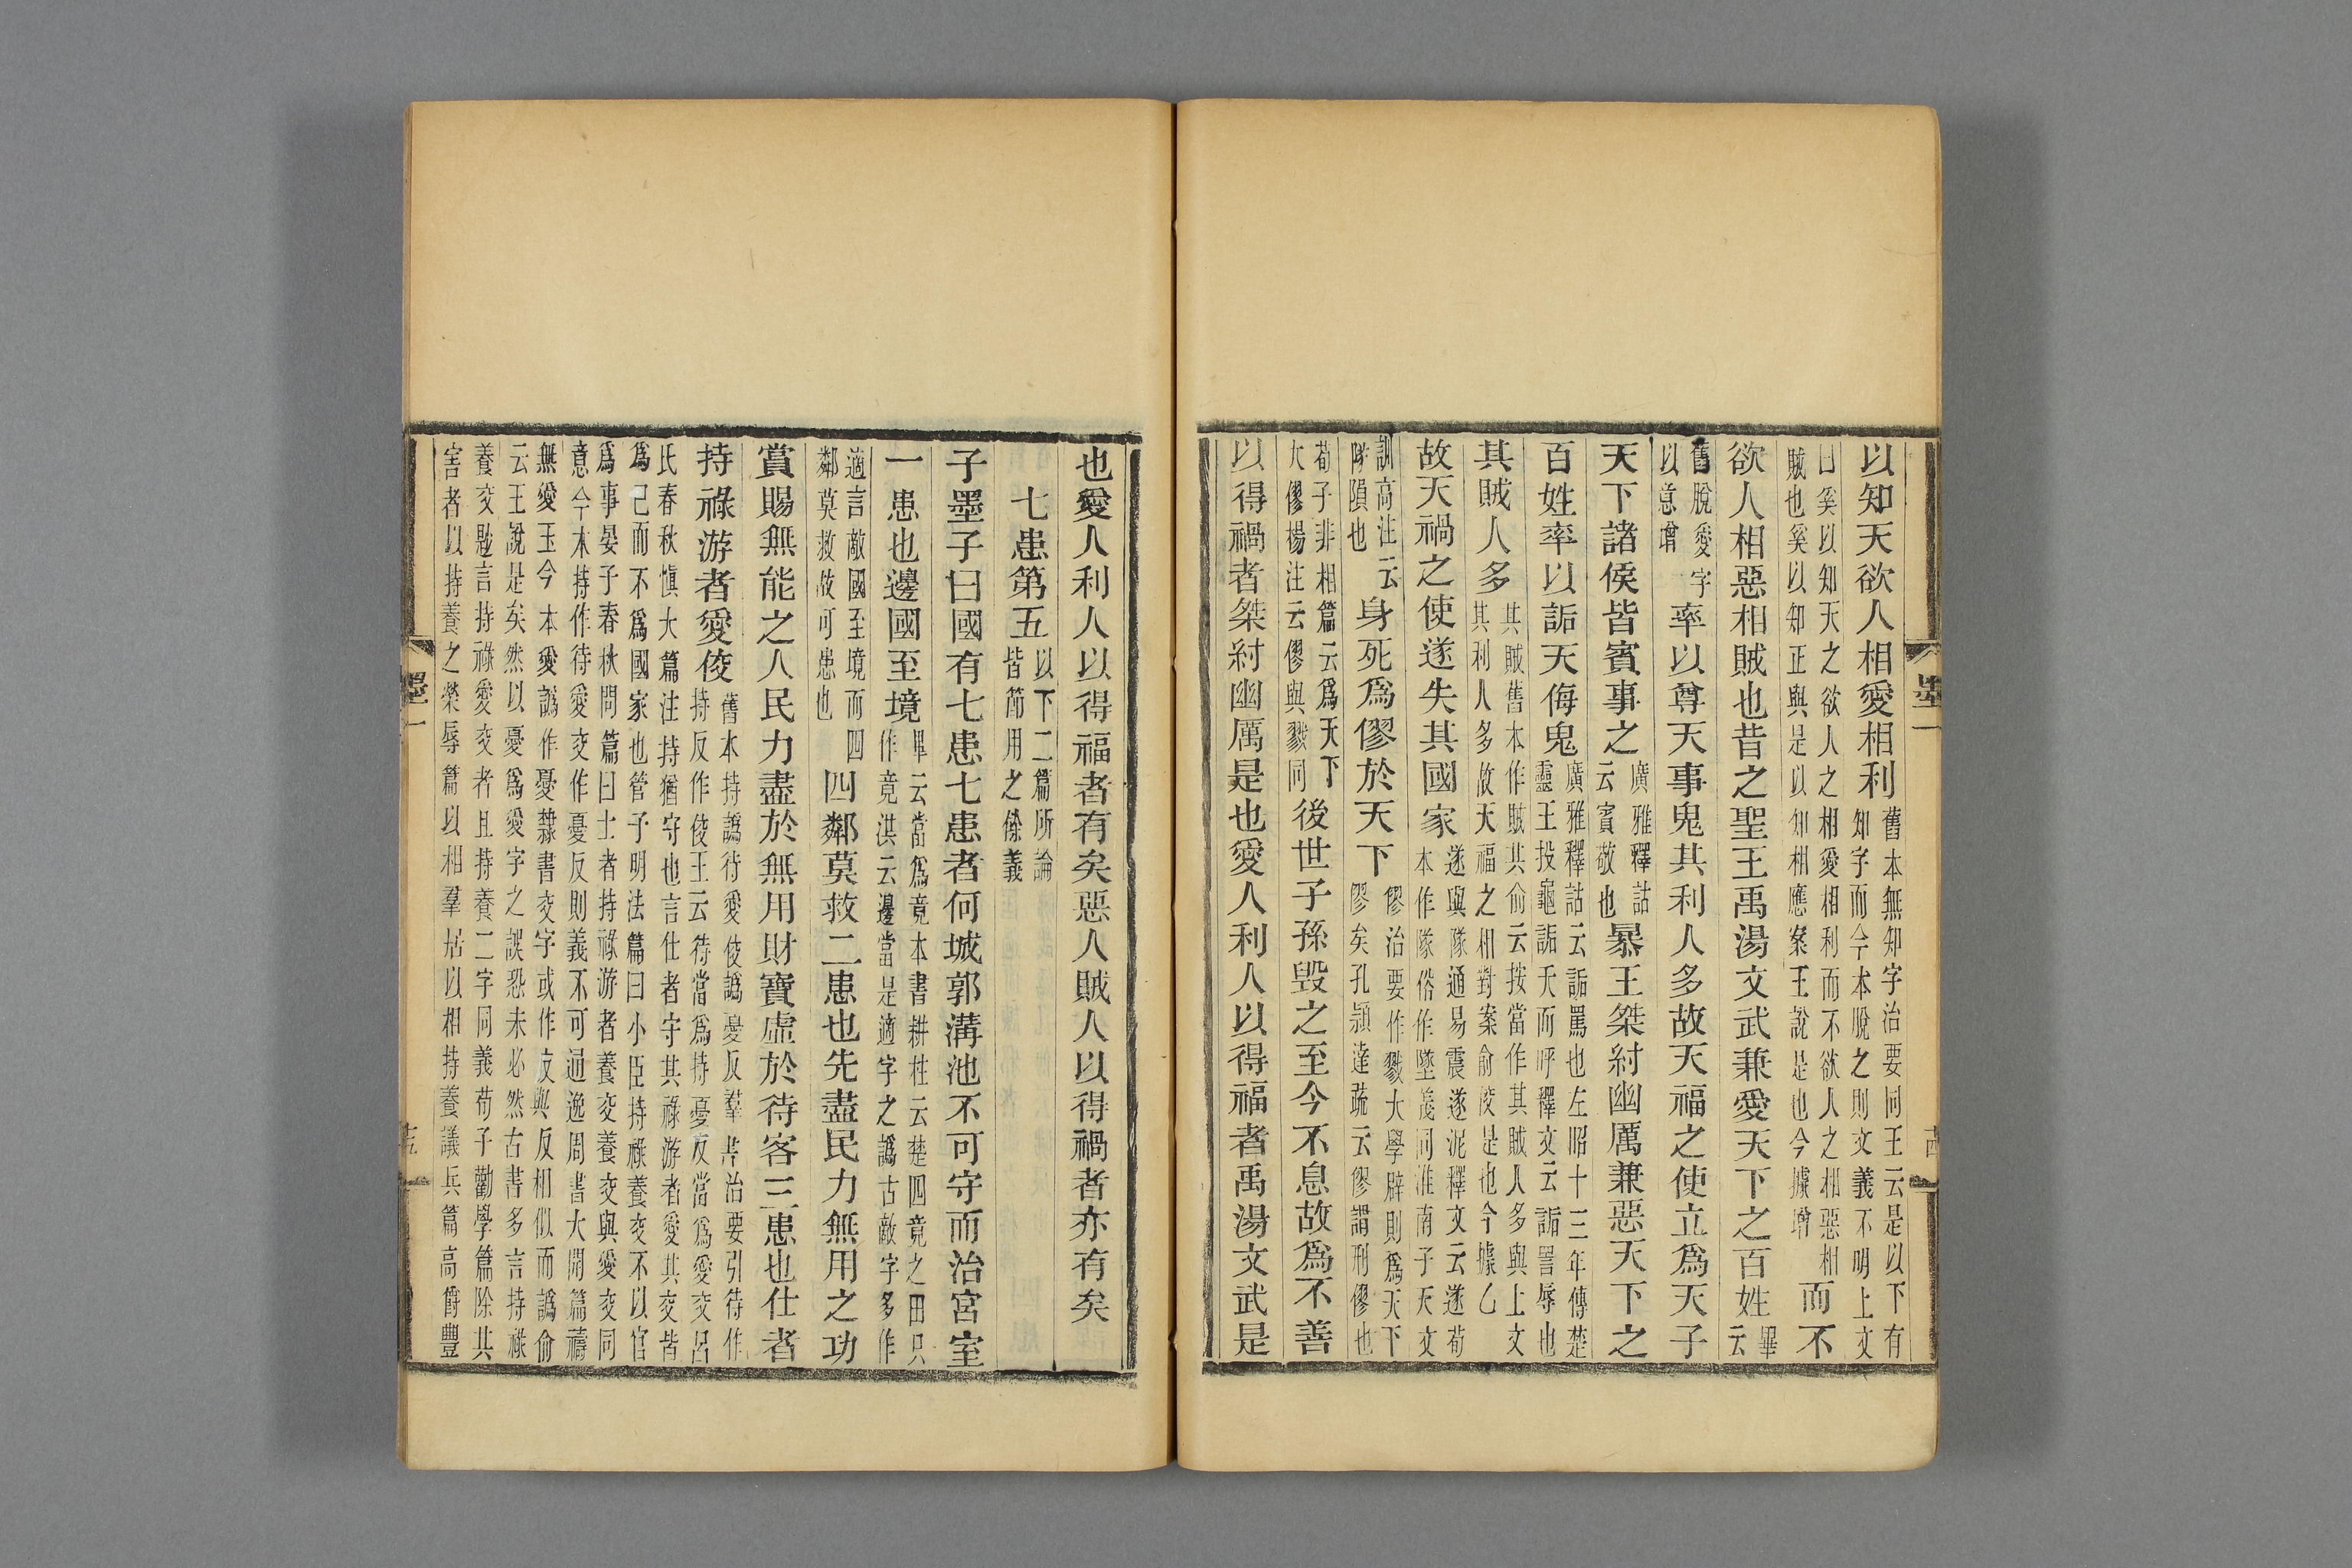 以知天欲人相愛相利舊本無知字治要同王云是以下有知字而今本脫之則文義不明上文
曰奚以知天之欲人之相愛相利而不欲人之相惡相賊也奚以知正與是以知相應案王說是也今據增而不
欲人相惡相賊也昔之聖王禹湯文武兼愛天下之百姓畢云
舊脫愛字以意增率以尊天事鬼其利人多故天福之使立爲天子
天下諸侯皆賓事之廣雅釋詁云賓敬也暴王桀紂幽厲兼惡天下之
百姓率以詬天侮鬼廣雅釋詁云詬罵也左昭十三年傳楚靈王投龜詬天而呼釋文云詬詈辱也
其賊人多其賊舊本作賊其俞云按當作其賊人多與上文其利人多故天福之相對案俞校是也今據乙
故天禍之使遂失其國家遂與隊通易震遂泥釋文云遂荀本作隊俗作墜義同淮南子天文
訓高注云隊隕也身死爲僇於天下僇治要作戮大學辟則爲天下僇矣孔穎達疏云僇謂刑僇也
荀子非相篇云爲天下大僇楊注云僇與戮同後世子孫毀之至今不息故爲不善
以得禍者桀紂幽厲是也愛人利人以得福者禹湯文武是
墨一
也愛人利人以得福者有矣惡人賊人以得禍者亦有矣
七患第五以下二篇所論皆節用之餘義
子墨子曰國有七患七患者何城郭溝池不可守而治宮室
一患也邊國至境畢云當爲竟本書耕柱云楚四竟之田只作竟洪云邊當是適字之譌古敵字多作
適言敵國至境而四鄰莫救故可患也四鄰莫救二患也先盡民力無用之功
賞賜無能之人民力盡於無用財寶虛於待客三患也仕者
持祿游者愛佼舊本持譌待愛佼譌憂反羣書治要引待作持反作佼王云待當爲持憂反當爲愛交呂
氏春秋愼大篇注持猶守也言仕者守其祿游者愛其交皆爲己而不爲國家也管子明法篇曰小臣持祿養交不以官
爲事晏子春秋問篇曰士者持祿游者養交養交與愛交同意今本持作待愛交作憂反則義不可通逸周書大開篇禱
無愛玉今本愛譌作憂隸書交字或作友與反相似而譌俞云王說是矣然以憂爲愛字之誤恐未必然古書多言持祿
養交尟言持祿愛交者且持養二字同義荀子勸學篇除其害者以持養之榮辱篇以相羣居以相持養議兵篇高爵豐
墨一